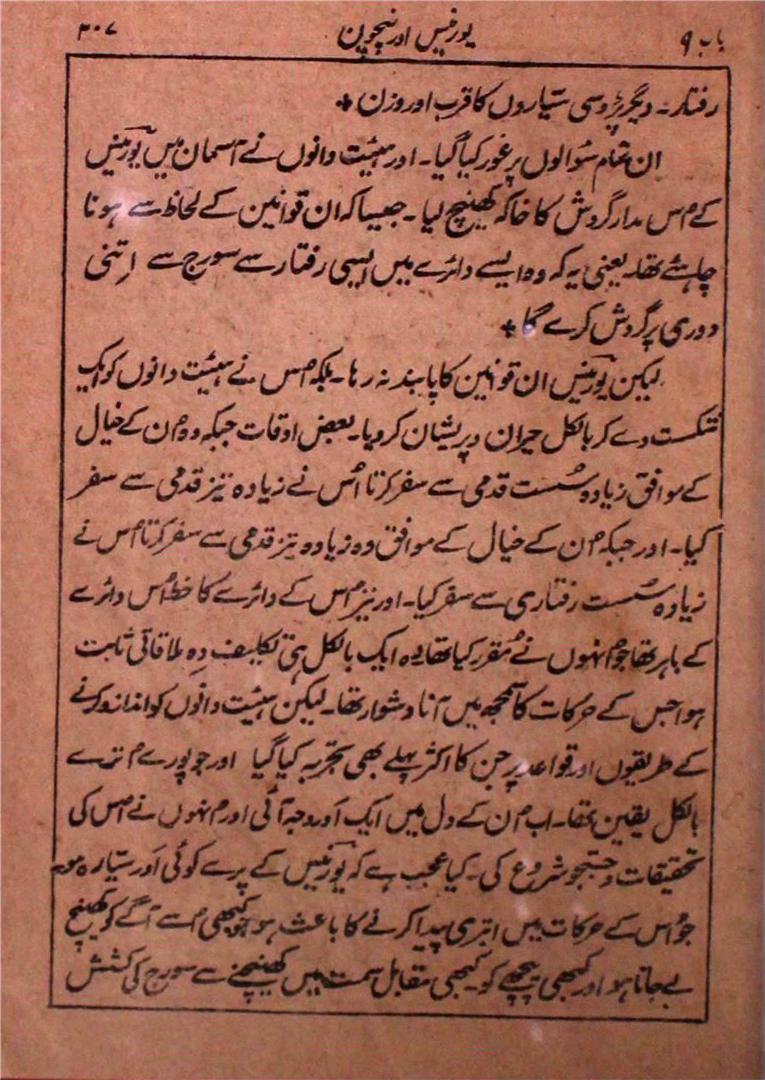 باب ۹ یورنیس اور نیچون ۳۰۷
رفتار۔ دیگر پڑوسی ستیاروں کا قرب اور وزن ٭
ان تمام سُوالوں پر غور کیا گیا۔ اور ہیئیت دانوں نے اُسمان میں یُورنیس
کے اُس مدار گردش کا خاکہ کھینچ لیا ۔ جیسا کہ ان قوانین کے لحاظ سے ہونا
چاہئے تھا۔ یعنی یہ کہ وہ ایسے دائرے میں ایسی رفتار سے سورج سے اِتنی
دوری پر گردش کرے گا ٭
لیکن یُورنیس ان قوانین کا پابند نہ رہا۔ بلکہ اُس نے ہیئت دانوں کو ایک
شکست دے کر بالکل حیران و پریشان کر دیا۔ بعض اوقات جبکہ وہ اُن کے خیال
کے موافق زیادہ سُست قدمی سے سفر کرتا اُس نے زیادہ تیز قدمی سے سفر
کیا۔ اور جبکہ اُن کے خیال کے موافق وہ زیادہ تیز قدمی سے سفر کرتا اُس نے
زیادہ سُست رفتاری سے سفر کیا۔ اور نیز اُس کے دائرے کا خط اُس دائرے
کے باہر تھا جو اُنہوں نے مُقرر کیا تھا یہ ایک بالکل ہی تکلیف دِہ ملاقاتی ثابت
ہوا جس کے حرکات کا سمجھ میں آنا دشوار تھا۔ لیکن ہیئت دانوں کو اندازہ کرنے
کے طریقوں اور قواعد پر جن کا اکثر پہلے بھی تجربہ کیا گیا اور جو پورے اُترے
بالکل یقین تھا۔ اب اُن کے دل میں ایک اَور وجہ آئی اور اُنہوں نے اُس کی
تحقیقات و جستجو شروع کی۔ کیا عجب ہے کہ یُورنیس کے پرے کوئی اَور ستیارہ ہو
جو اُس کے حرکات میں ابتری پیدا کرنے کا باعث ہو جو کبھی اُسے آگے کو کھینچ
لے جاتا ہو اور کبھی پیچھے کو کبھی مقابل سمت میں کھینچنے سے سورج کی کشش